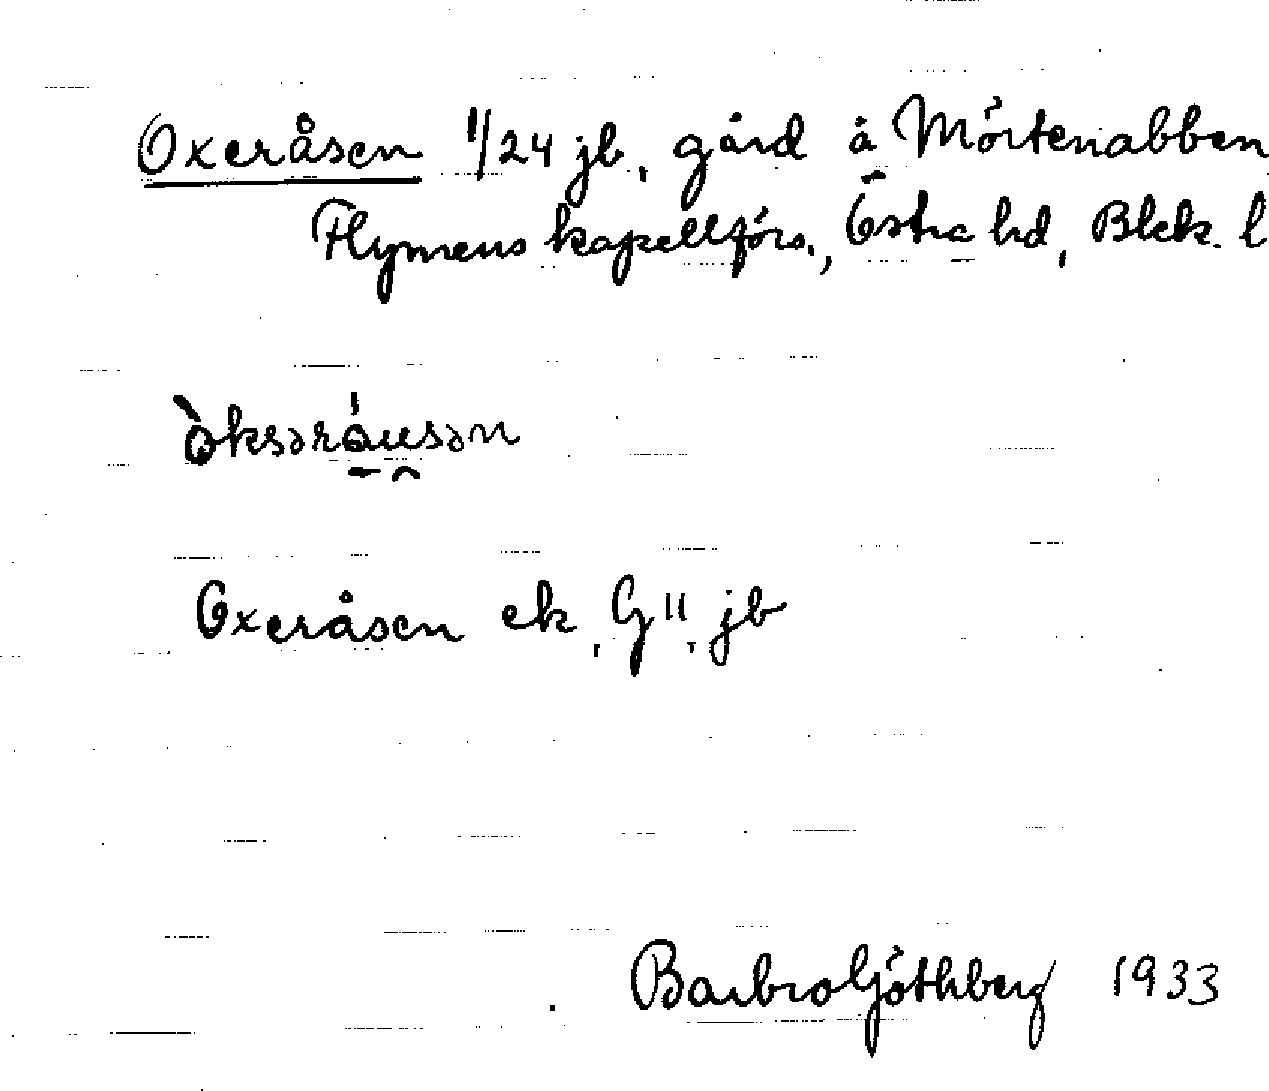 Oxeråsen 1/24 jb, gård å Mörtenabben
Flymens kapellförs., Östra hd, Blek. l
òksəráusən
Oxeråsen ek, G", jb
Barbro Göthberg 1933